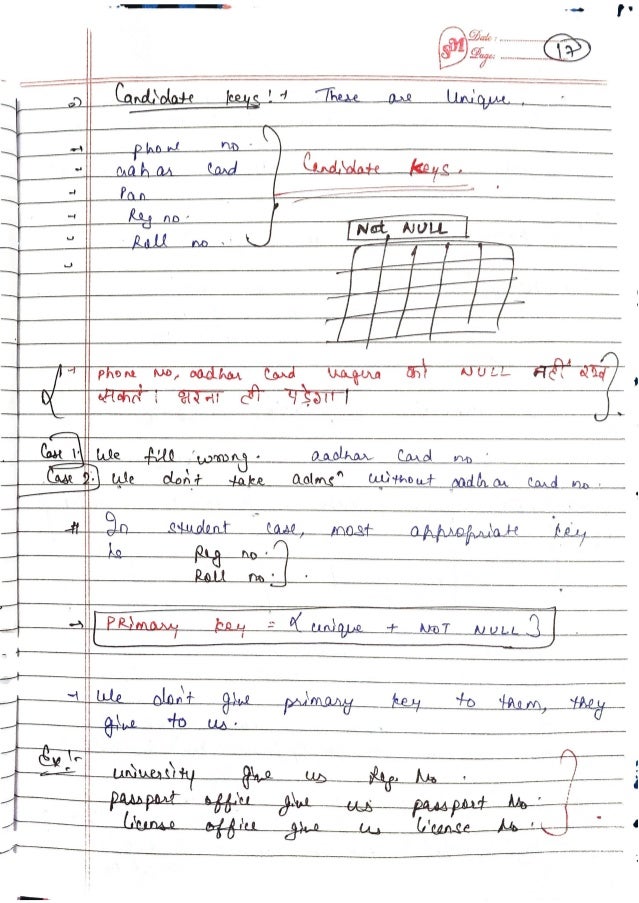 SM Date:
Page:
17
2) Candidate keys:→ These are Unique.
→ phone no.
- aahas Card
→ Pan
→ Reg no.
- Roll no.
Candidate keys.
Not NULL
→ phone No, aadhar Card vagera को NULL नहीं रख
सकते। भरना ही पड़ेगा।
Case 1. We fill wrong. aadhar Card no.
Case 2. We don't take admsⁿ without aadhar Card no.
# In student case, most appropriate key
is Reg no.
Roll no.
→ PRimary key = { unique + NOT NULL }
→ We don't give primary key to them, they
give to us.
Ex:-
university give us Reg. No.
passport office give us passport No.
license office give us license No.